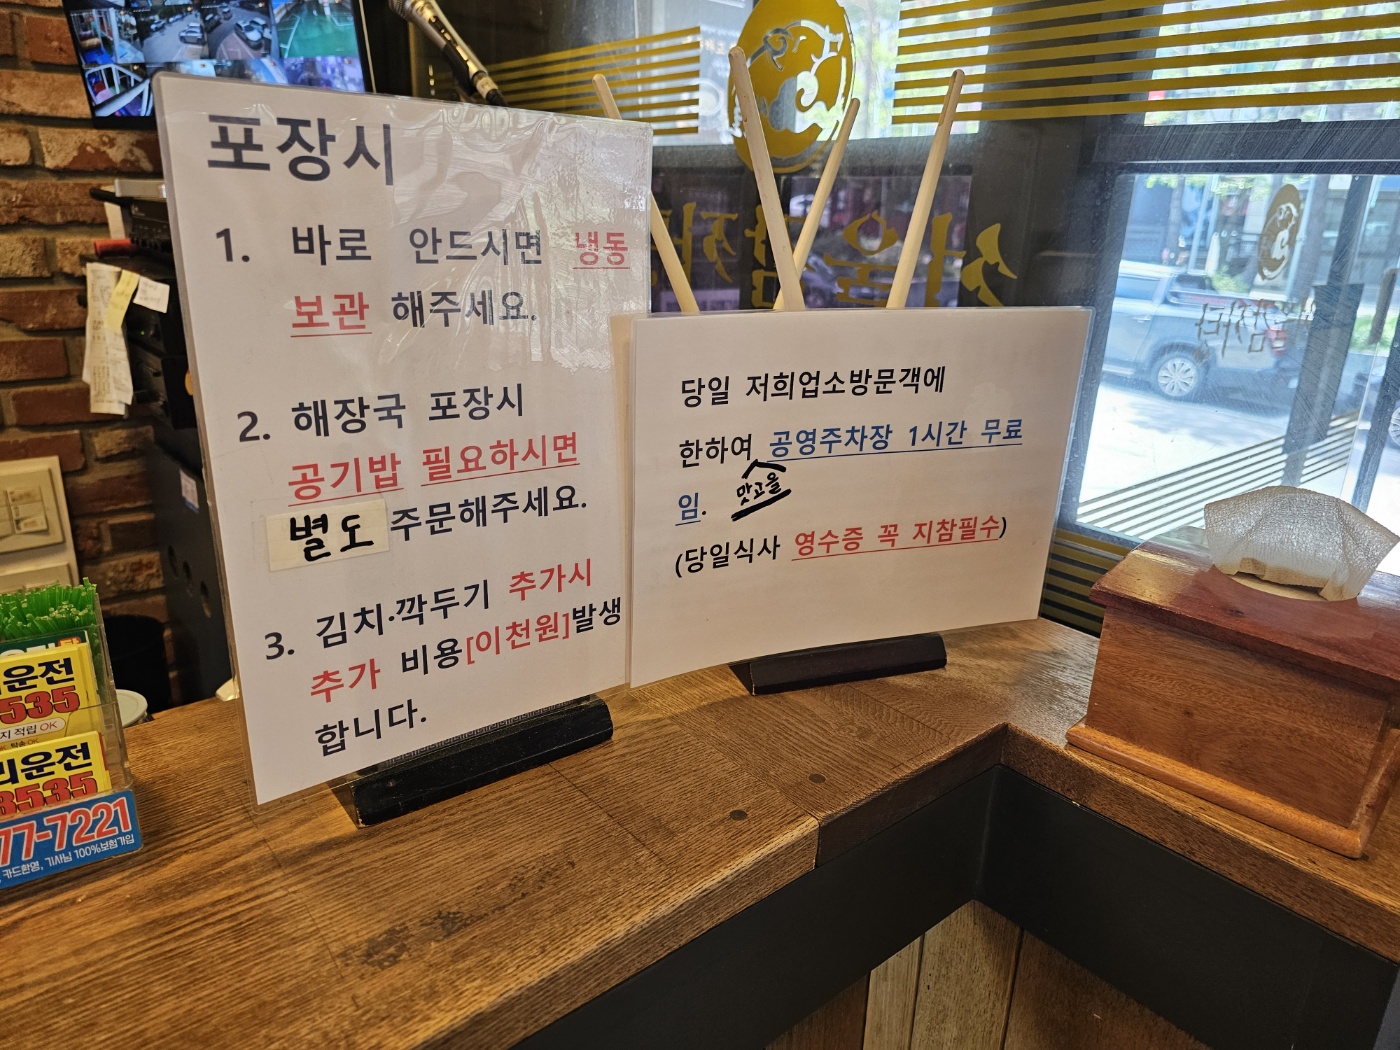 포장시
1. 바로 안드시면 냉동
보관 해주세요.
2. 해장국 포장시
공기밥 필요하시면
별도 주문해주세요.
3. 김치·깍두기 추가시
추가 비용[이천원]발생
합니다.
당일 저희업소방문객에
한하여 공영주차장 1시간 무료
임. 맛고을
(당일식사 영수증 꼭 지참필수)
운전
535
지 적립 OK
리운전
8535
77-7221
카드환영, 기사님 100%보험가입
서울감자